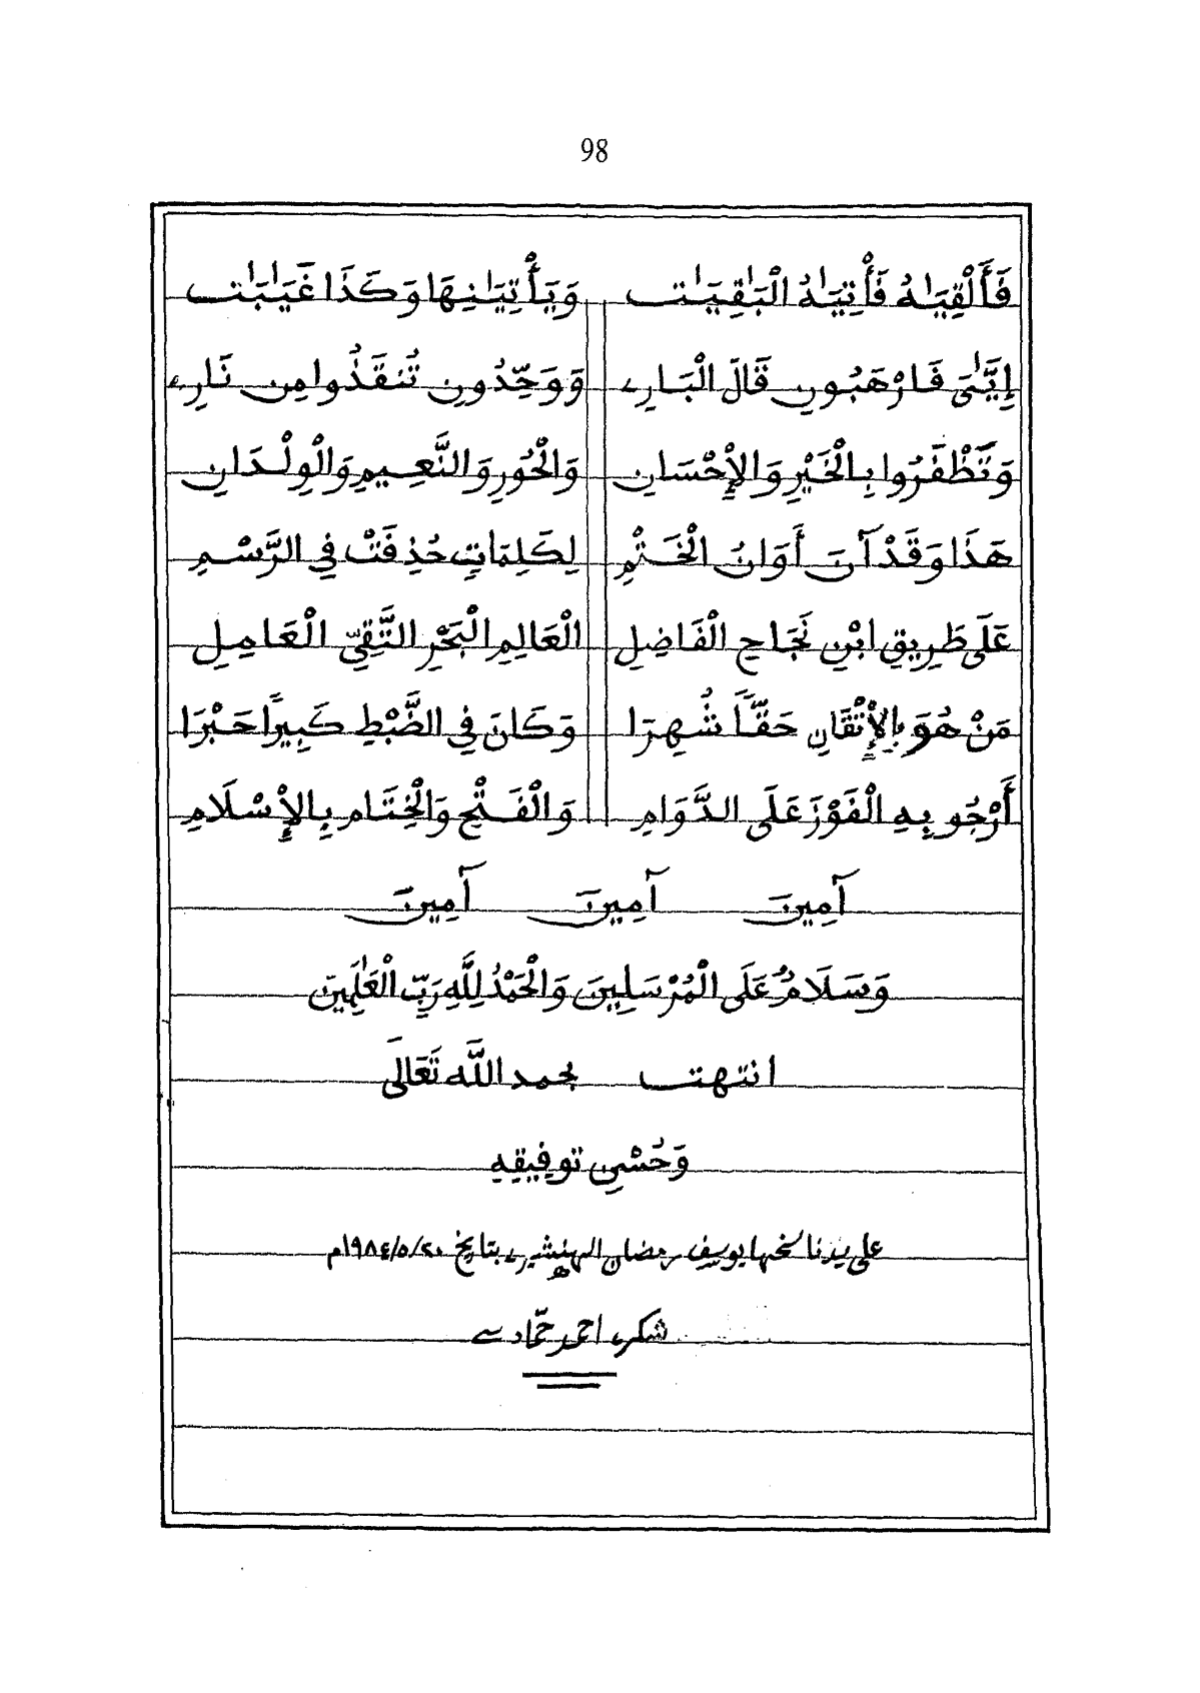 98
فَأَلْقِيَٰهُ فَأْتِيَٰهُ الْبَٰقِيَٰت وَيَأْتِيَٰنِهَا وَكَذَا غَيَٰبَٰت
إِيَّٰىَ فَارْهَبُونِ قَالَ الْبَارِي وَوَحِّدُونِ تُنقَذُوا مِن نَارِي
وَتَظْفَرُوا بِالْخَيْرِ وَالْإِحْسَانِ وَالْحُورِ وَالنَّعِيمِ وَالْوِلْدَانِ
هَذَا وَقَدْ آنَ أَوَانُ الْخَتْمِ لِكَلِمَاتٍ حُذِفَتْ فِي الرَّسْمِ
عَلَى طَرِيقِ ابْنِ نَجَاحِ الْفَاضِلِ الْعَالِمِ الْبَحْرِ التَّقِيِّ الْعَامِلِ
مَنْ هُوَ بِالْإِتْقَانِ حَقًّا شُهِرَا وَكَانَ فِي الضَّبْطِ كَبِيرًا حَبْرَا
أَرْجُو بِهِ الْفَوْزَ عَلَى الدَّوَامِ وَالْفَتْحِ وَالْخِتَامِ بِالْإِسْلَامِ
آمِينَ آمِينَ آمِينَ
وَسَلَامٌ عَلَى الْمُرْسَلِينَ وَالْحَمْدُ لِلَّهِ رَبِّ الْعَٰلَمِينَ
انتهت بحمد اللَّه تَعَالَى
وَحُسْنِ توفِيقِهِ
على يد ناسخها يوسف رمضان الهنشيري بتاريخ ٢٠/٥/١٩٨٤م
شكري احمد حمّادي